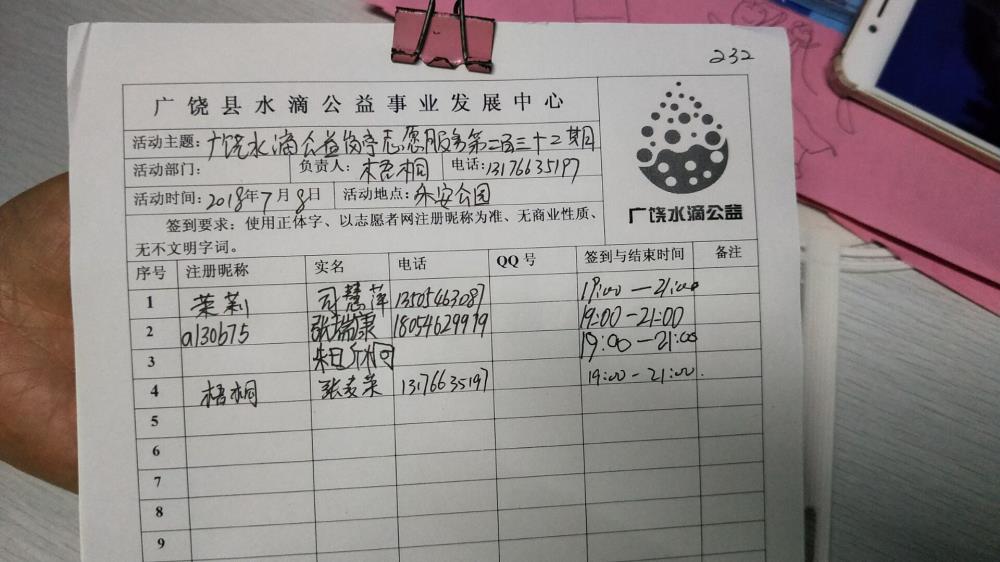 232
广饶县水滴公益事业发展中心
活动主题：广饶水滴公益岗亭志愿服务第二百三十二期
活动部门： 负责人：梧桐 电话：13176635197
活动时间：2018年7月8日 活动地点：永安公园
签到要求：使用正体字、以志愿者网注册昵称为准、无商业性质、
无不文明字词。
广饶水滴公益
序号 注册昵称 实名 电话 QQ号 签到与结束时间 备注
1 茉莉 司慧萍 13505463087 19:00—21:00
2 a130675 张瑞康 18054629979 19:00-21:00
3 19:00—21:00
4 梧桐 13176635197 19:00-21:00.
5
6
7
8
9